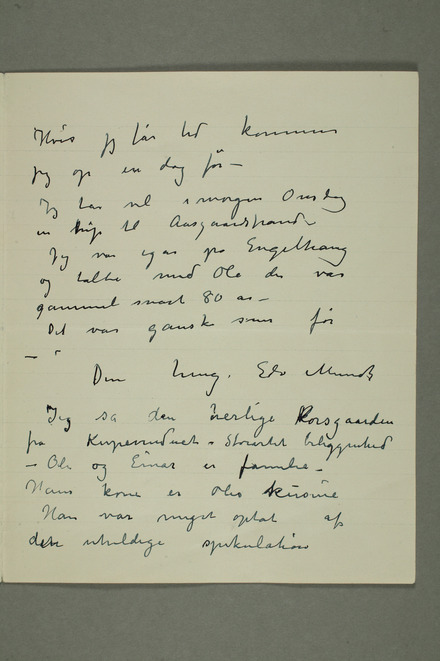 Hvis jeg får tid kommer
jeg op en dag før –
Jeg tar vel i morgen Onsdag
en trip til Aasgaardstrand
Jeg var igår på Engelhaug
og talte med Ole der var
gammel snart 80 år –
Det var ganske som før
–
Din heng. Edv Munch
Jeg så den herlige Korsgaarden
fra Kupevinduet i Storartet beliggenhed
– Ole og Einar er familie –
Hans kone er Oles kusine
Han var meget optat af
den uheldige spekulation